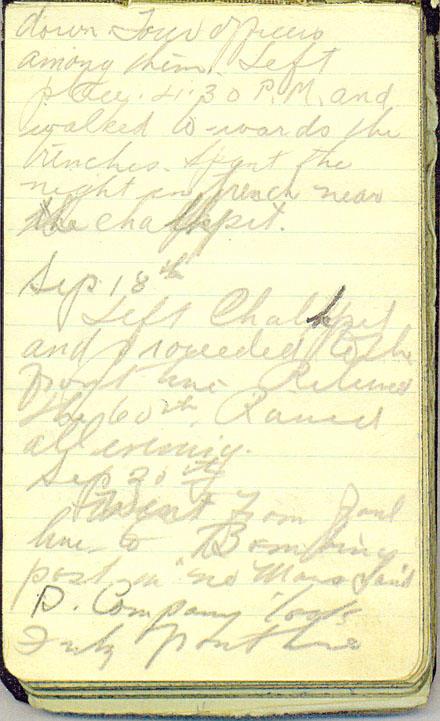 down Four officers
among them. Left
place. 4.30 P.M. and
walked towards the
trenches. Spent the
night in trench near
the chalkpit.
Sep 18th
Left Chalkpit
and proceeded to the
front line Relieved
the 60th. Rained
all evening.
Sep 30th
Went from front
line to Bombing
post in "no Mans Land
D. Company took
front line